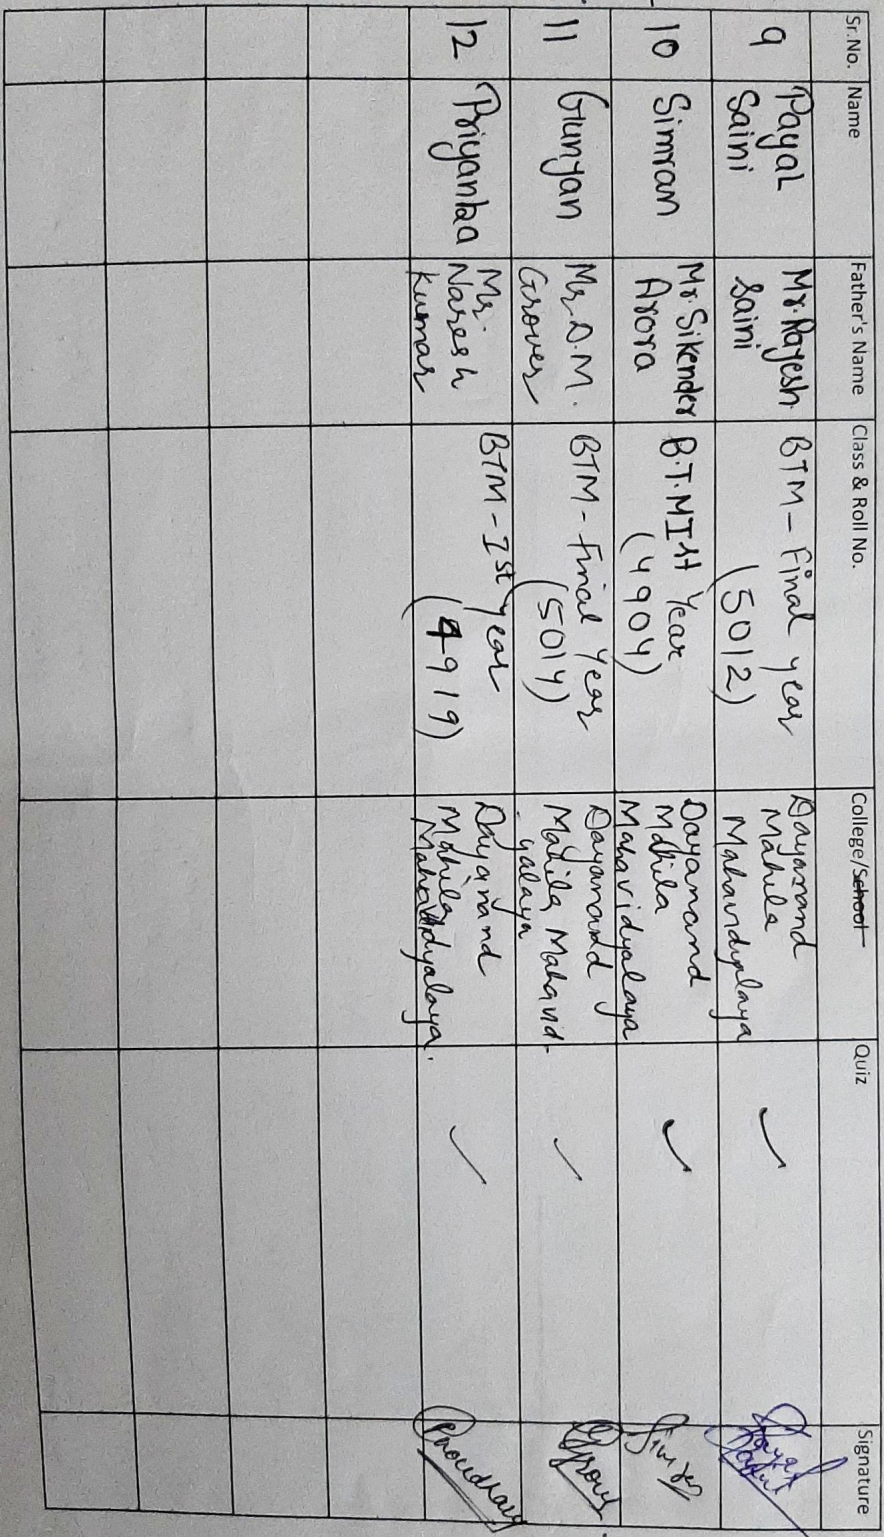 Sr.No. Name Father's Name Class & Roll No. College/School Quiz Signature
9 Payal Saini Mr. Rajesh Saini BTM - Final year (5012) Dayanand Mahila Mahavidyalaya ✓
10 Simran Mr. Sikender Arora B.T.M Ist Year (4904) Dayanand Mahila Mahavidyalaya ✓
11 Gunjan Mr. D.M. Grover BTM - Final Year (5014) Dayanand Mahila Mahavid-yalaya ✓
12 Priyanka Mr. Naresh Kumar BTM - Ist year (4919) Dayanand Mahila Mahavidyalaya. ✓